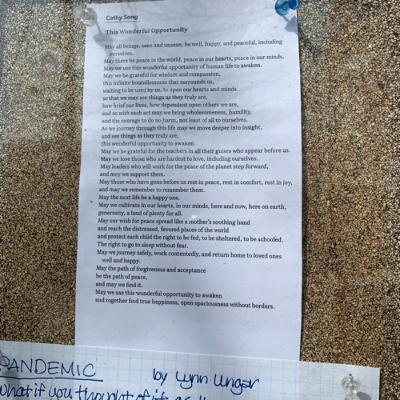 Cathy Song
This Wonderful Opportunity
May all beings, seen and unseen, be well, happy, and peaceful, including
ourselves.
May there be peace in the world, peace in our hearts, peace in our minds.
May we use this wonderful opportunity of human life to awaken.
May we be grateful for wisdom and compassion,
this infinite boundlessness that surrounds us,
waiting to be used by us, to open our hearts and minds
so that we may see things as they truly are,
how brief our lives, how dependent upon others we are,
and as with each act may we bring wholesomeness, humility,
and the courage to do no harm, not least of all to ourselves.
As we journey through this life may we move deeper into insight,
and see things as they truly are,
this wonderful opportunity to awaken.
May we be grateful for the teachers in all their guises who appear before us.
May we love those who are hardest to love, including ourselves.
May leaders who will work for the peace of the planet step forward,
and may we support them.
May those who have gone before us rest in peace, rest in comfort, rest in joy,
and may we remember to remember them.
May the next life be a happy one.
May we cultivate in our hearts, in our minds, here and now, here on earth,
generosity, a land of plenty for all.
May our wish for peace spread like a mother's soothing hand
and reach the distressed, fevered places of the world
and protect each child the right to be fed, to be sheltered, to be schooled.
The right to go to sleep without fear.
May we journey safely, work contentedly, and return home to loved ones
well and happy.
May the path of forgiveness and acceptance
be the path of peace,
and may we find it.
May we use this wonderful opportunity to awaken
and together find true happiness, open spaciousness without borders.
PANDEMIC by Lynn Ungar
What if you thought of it as